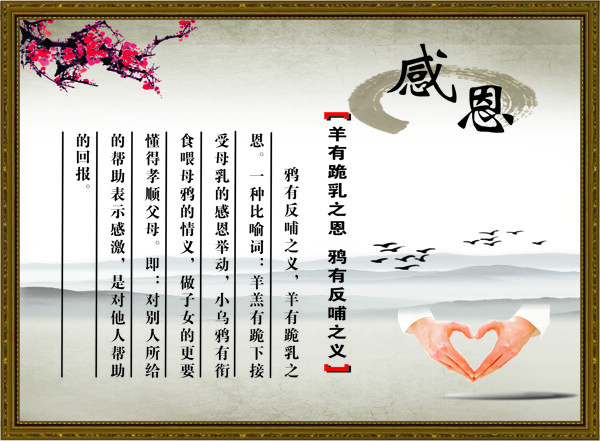 感恩
【羊有跪乳之恩 鸦有反哺之义】
鸦有反哺之义，羊有跪乳之
恩。一种比喻词：羊羔有跪下接
受母乳的感恩举动，小乌鸦有衔
食喂母鸦的情义，做子女的更要
懂得孝顺父母。即：对别人所给
的帮助表示感激，是对他人帮助
的回报。